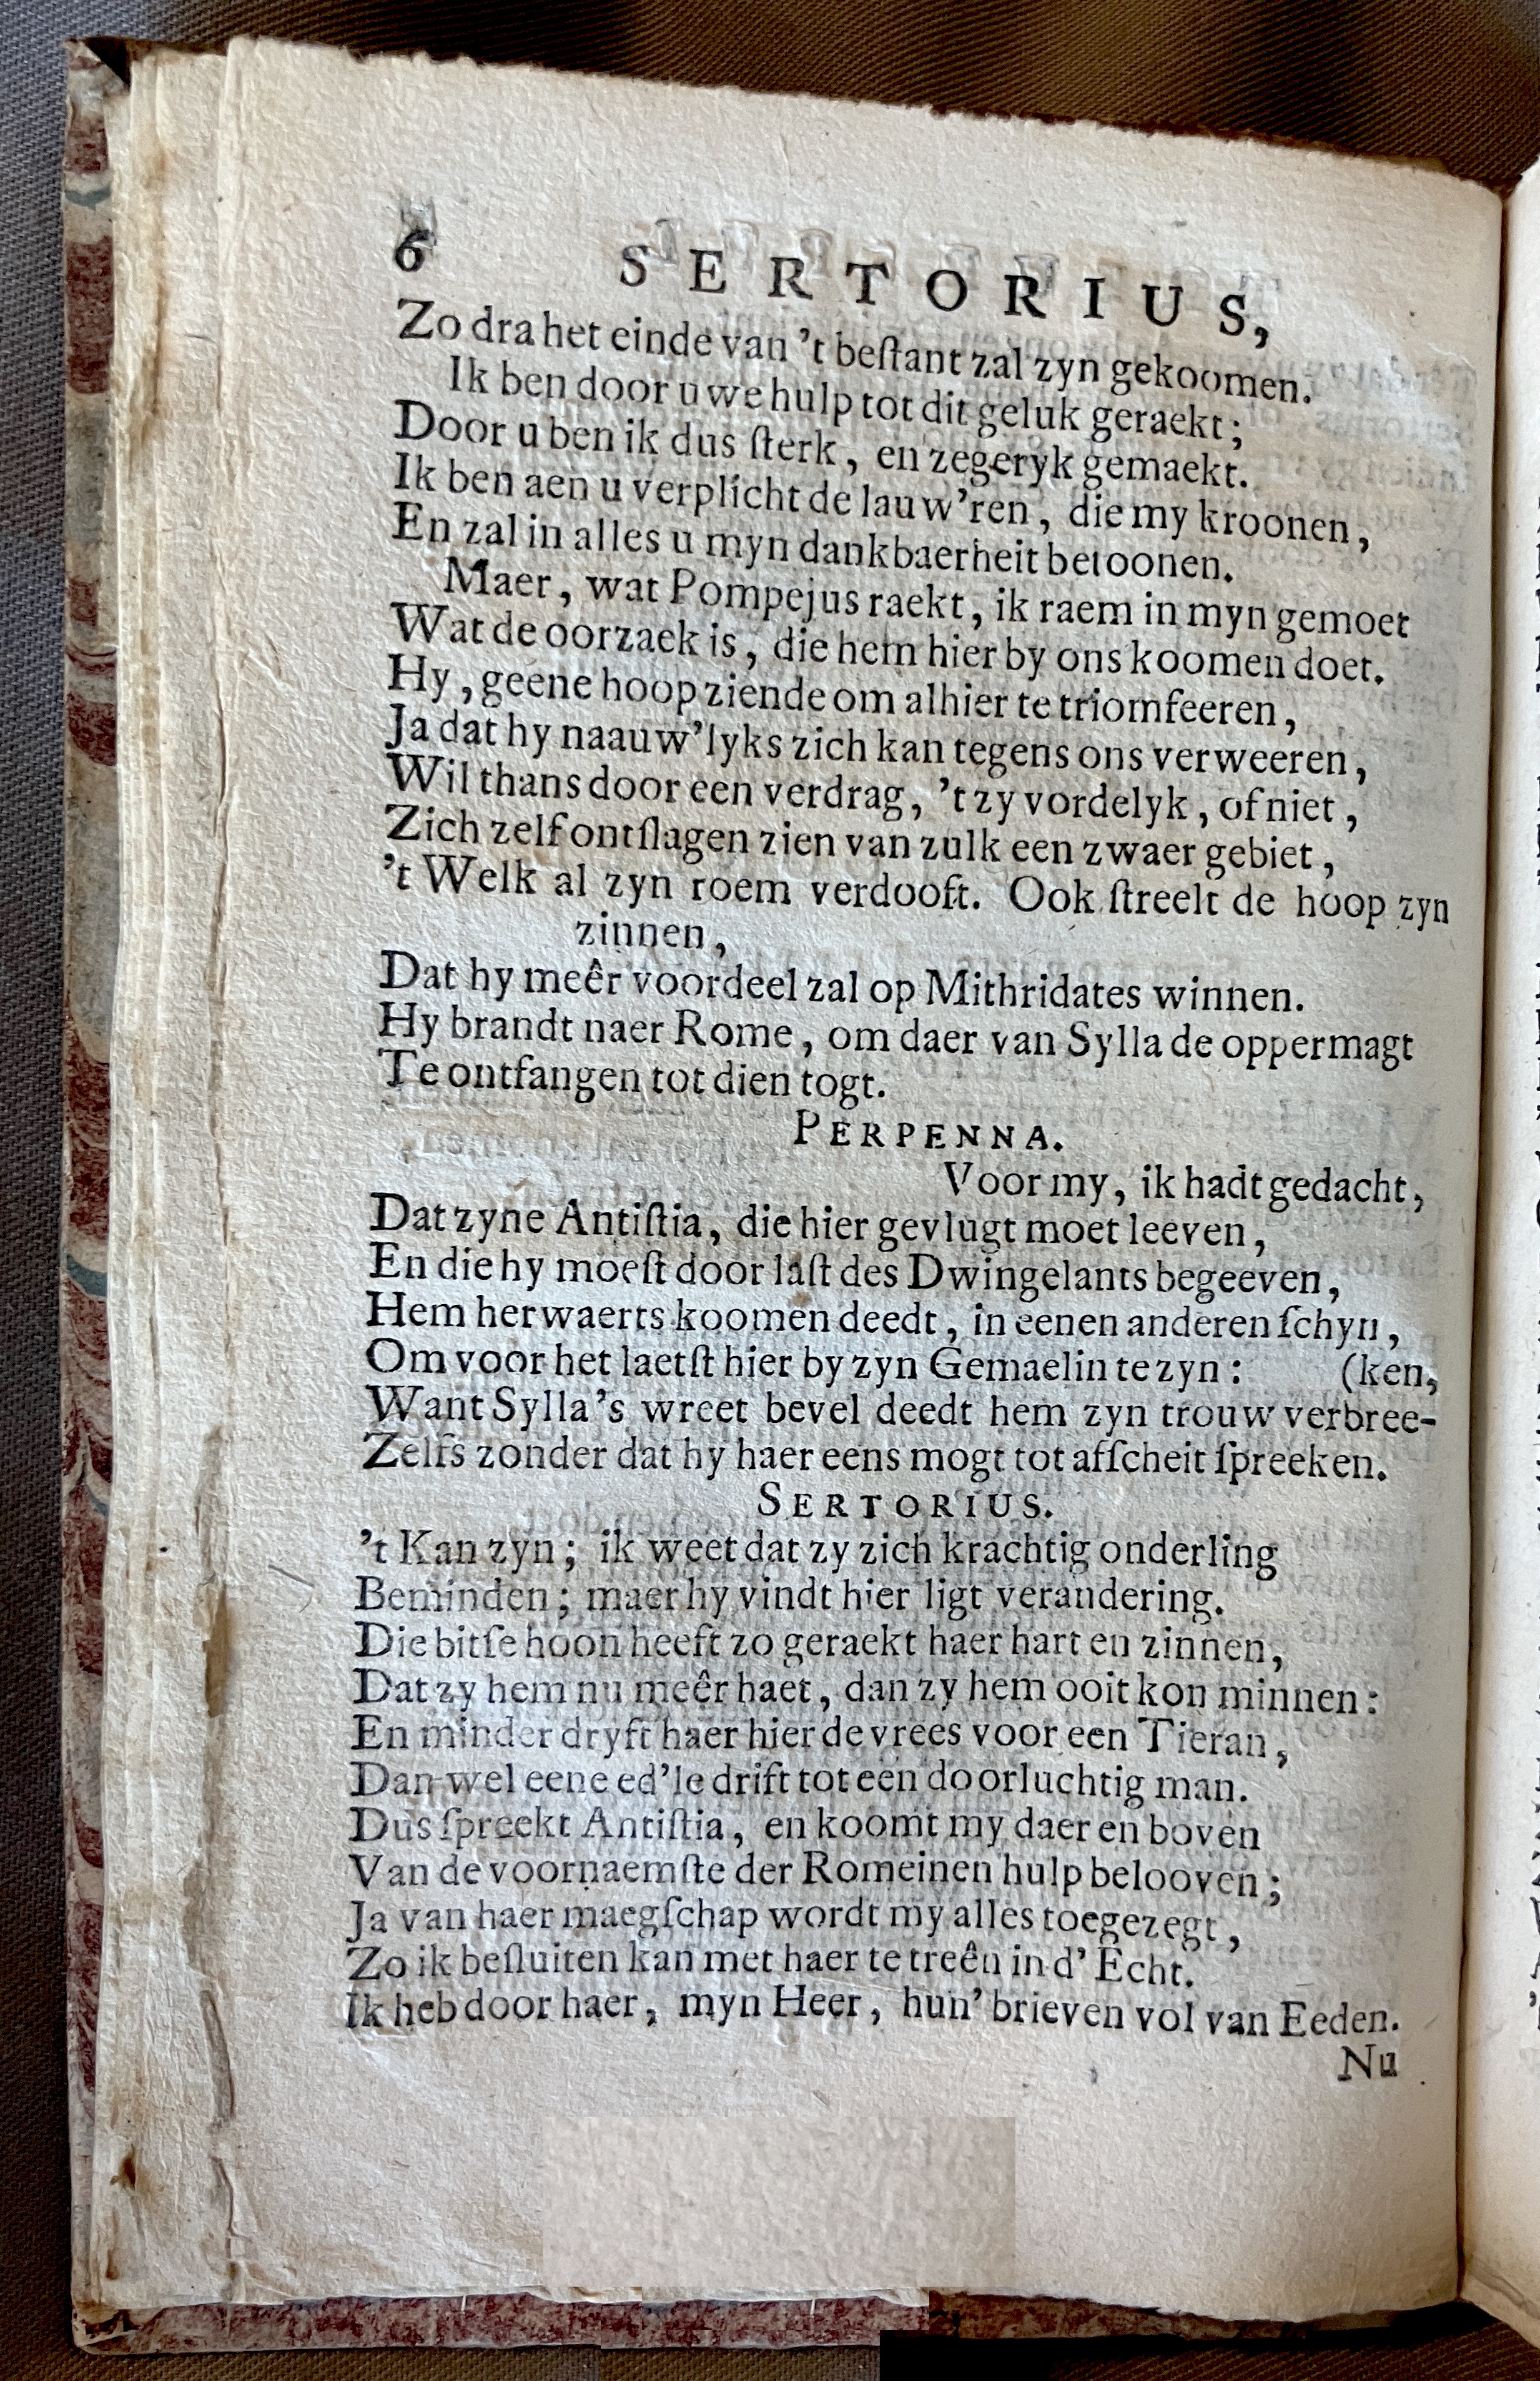 6 SERTORIUS,
Zo dra het einde van 't beſtant zal zyn gekoomen.
Ik ben door uwe hulp tot dit geluk geraekt;
Door u ben ik dus ſterk, en zegeryk gemaekt.
Ik ben aen u verplicht de lauw'ren, die my kroonen,
En zal in alles u myn dankbaerheit betoonen.
Maer, wat Pompejus raekt, ik raem in myn gemoet
Wat de oorzaek is, die hem hier by ons koomen doet.
Hy, geene hoop ziende om alhier te triomfeeren,
Ja dat hy naauw'lyks zich kan tegens ons verweeren,
Wil thans door een verdrag, 't zy vordelyk, of niet,
Zich zelf ontſlagen zien van zulk een zwaer gebiet,
't Welk al zyn roem verdooft. Ook ſtreelt de hoop zyn
zinnen,
Dat hy meêr voordeel zal op Mithridates winnen.
Hy brandt naer Rome, om daer van Sylla de oppermagt
Te ontfangen tot dien togt.
PERPENNA.
Voor my, ik hadt gedacht,
Dat zyne Antiſtia, die hier gevlugt moet leeven,
En die hy moeſt door laſt des Dwingelants begeeven,
Hem herwaerts koomen deedt, in eenen anderen ſchyn,
Om voor het laetſt hier by zyn Gemaelin te zyn: (ken,
Want Sylla's wreet bevel deedt hem zyn trouw verbree-
Zelfs zonder dat hy haer eens mogt tot afſcheit ſpreeken.
SERTORIUS.
't Kan zyn; ik weet dat zy zich krachtig onderling
Beminden; maer hy vindt hier ligt verandering.
Die bitſe hoon heeft zo geraekt haer hart en zinnen,
Dat zy hem nu meêr haet, dan zy hem ooit kon minnen:
En minder dryft haer hier de vrees voor een Tieran,
Dan wel eene ed'le drift tot een doorluchtig man.
Dus ſpreekt Antiſtia, en koomt my daer en boven
Van de voornaemſte der Romeinen hulp belooven;
Ja van haer maegſchap wordt my alles toegezegt,
Zo ik beſluiten kan met haer te treên in d' Echt.
Ik heb door haer, myn Heer, hun' brieven vol van Eeden.
Nu